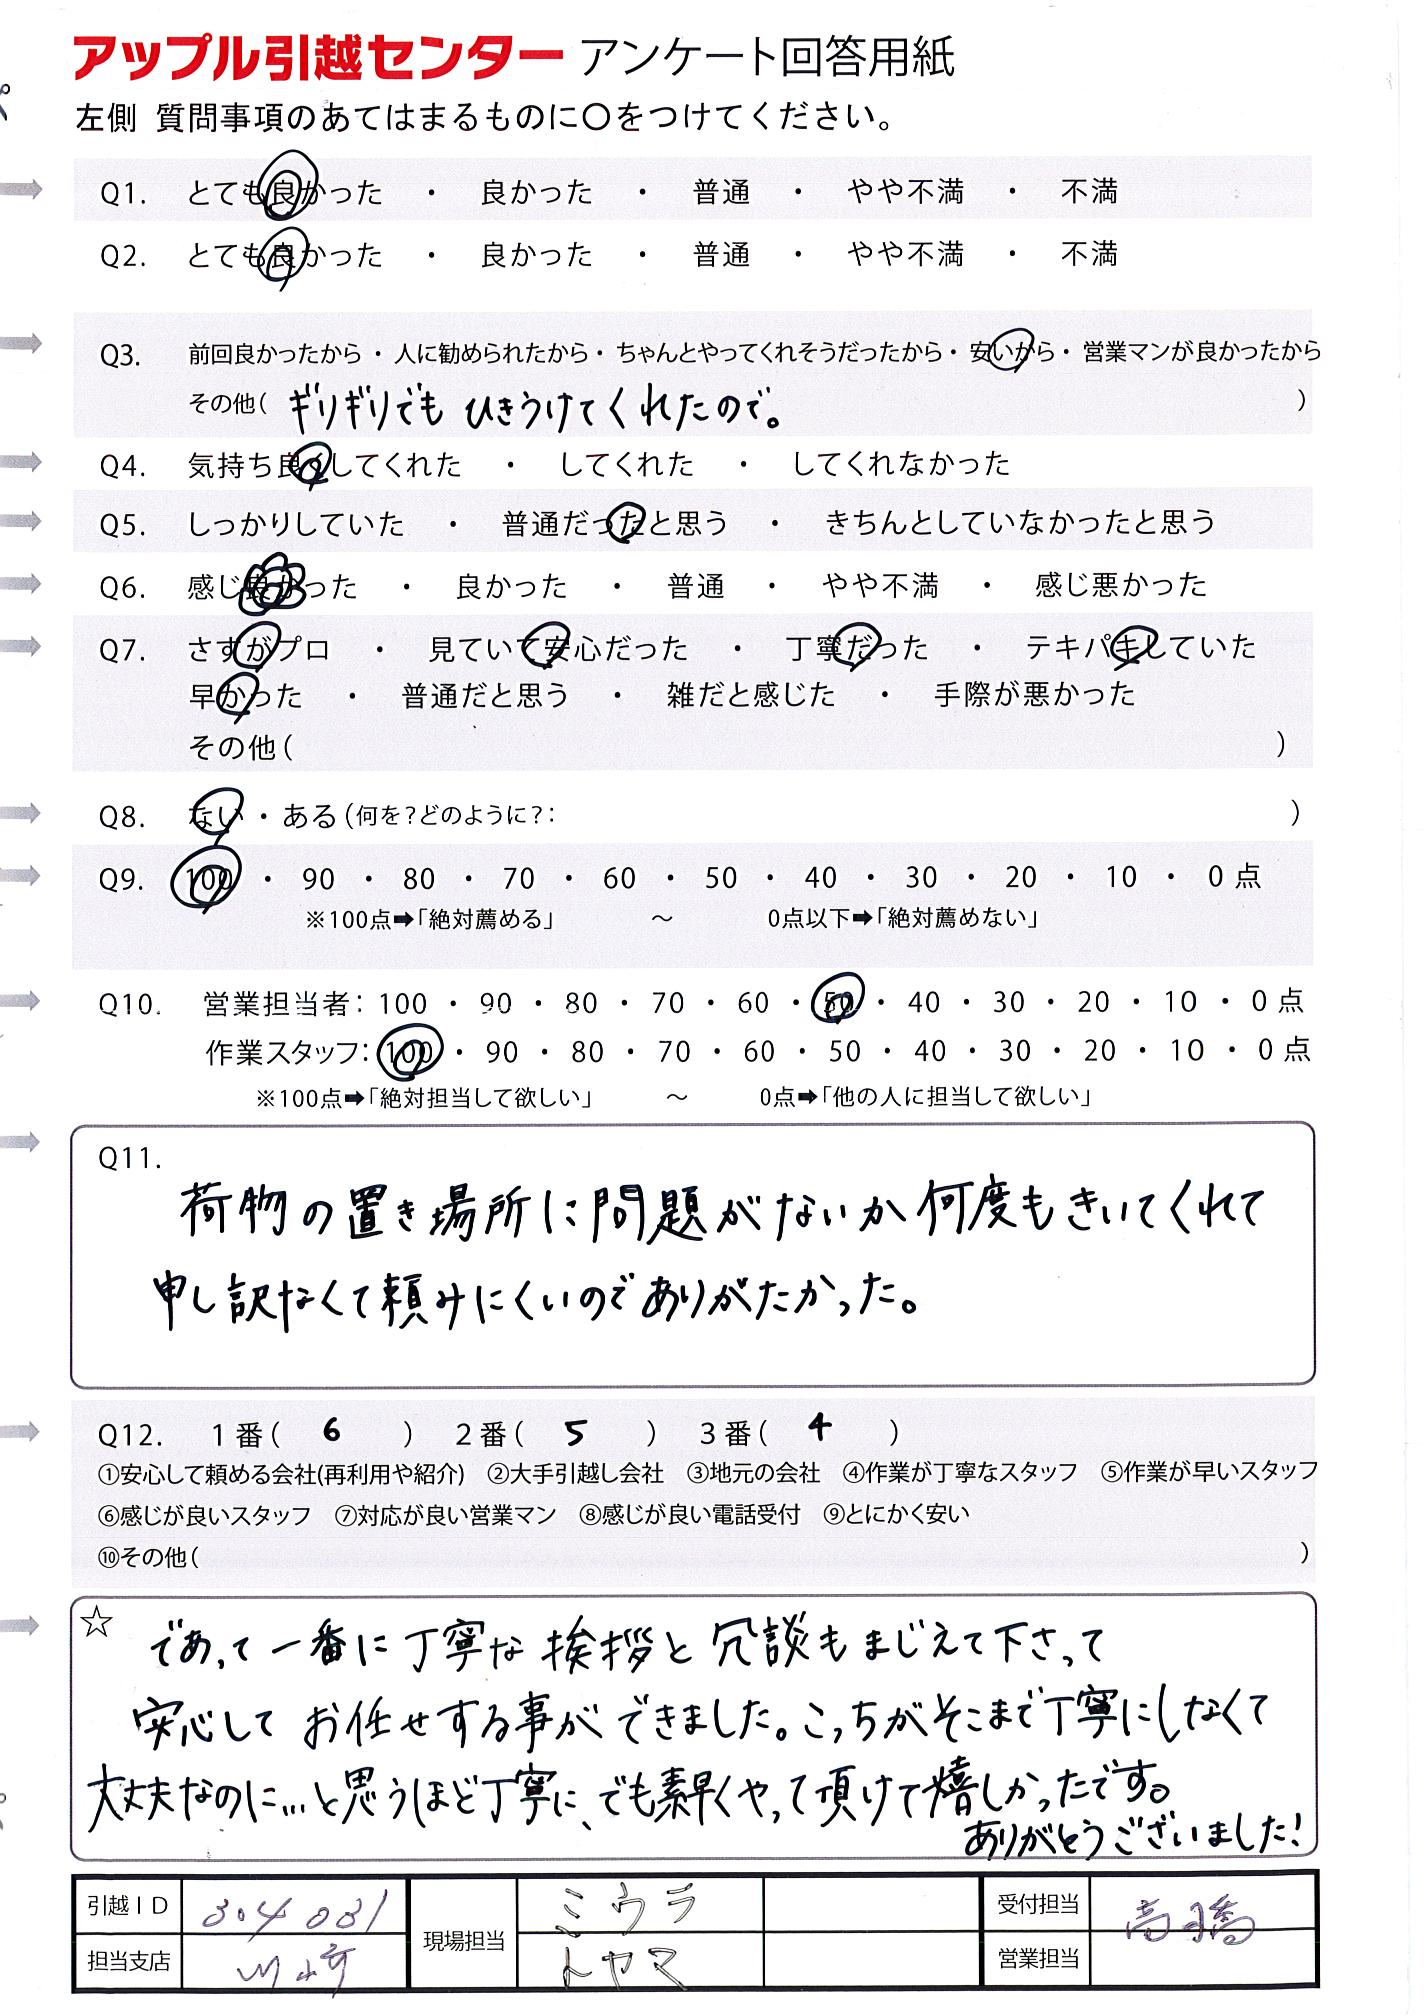 アップル引越センター アンケート回答用紙
左側 質問事項のあてはまるものに〇をつけてください。
Q1. とても良かった ・ 良かった ・ 普通 ・ やや不満 ・ 不満
Q2. とても良かった ・ 良かった ・ 普通 ・ やや不満 ・ 不満
Q3. 前回良かったから・人に勧められたから・ちゃんとやってくれそうだったから・安いから・営業マンが良かったから
その他( ギリギリでも ひきうけてくれたので。 )
Q4. 気持ち良くしてくれた ・ してくれた ・ してくれなかった
Q5. しっかりしていた ・ 普通だったと思う ・ きちんとしていなかったと思う
Q6. 感じ良かった ・ 良かった ・ 普通 ・ やや不満 ・ 感じ悪かった
Q7. さすがプロ ・ 見ていて安心だった ・ 丁寧だった ・ テキパキしていた
早かった ・ 普通だと思う ・ 雑だと感じた ・ 手際が悪かった
その他( )
Q8. ない・ある(何を?どのように?: )
Q9. 100 ・ 90 ・ 80 ・ 70 ・ 60 ・ 50 ・ 40 ・ 30 ・ 20 ・ 10 ・ 0点
※100点➡「絶対薦める」 ～ 0点以下➡「絶対薦めない」
Q10. 営業担当者: 100 ・ 90 ・ 80 ・ 70 ・ 60 ・ 50 ・ 40 ・ 30 ・ 20 ・ 10 ・ 0点
作業スタッフ: 100 ・ 90 ・ 80 ・ 70 ・ 60 ・ 50 ・ 40 ・ 30 ・ 20 ・ 10 ・ 0点
※100点➡「絶対担当して欲しい」 ～ 0点➡「他の人に担当して欲しい」
Q11.
荷物の置き場所に問題がないか何度もきいてくれて
申し訳なくて頼みにくいのでありがたかった。
Q12. 1番( 6 ) 2番( 5 ) 3番( 4 )
①安心して頼める会社(再利用や紹介) ②大手引越し会社 ③地元の会社 ④作業が丁寧なスタッフ ⑤作業が早いスタッフ
⑥感じが良いスタッフ ⑦対応が良い営業マン ⑧感じが良い電話受付 ⑨とにかく安い
⑩その他( )
☆ であって一番に丁寧な挨拶と冗談もまじえて下さって
安心してお任せする事ができました。こっちがそこまで丁寧にしなくて
大丈夫なのに...と思うほど丁寧に、でも素早くやって頂けて嬉しかったです。
ありがとうございました!
引越ID 304031 現場担当 ミウラ 受付担当 高橋
担当支店 川崎 トヤマ 営業担当